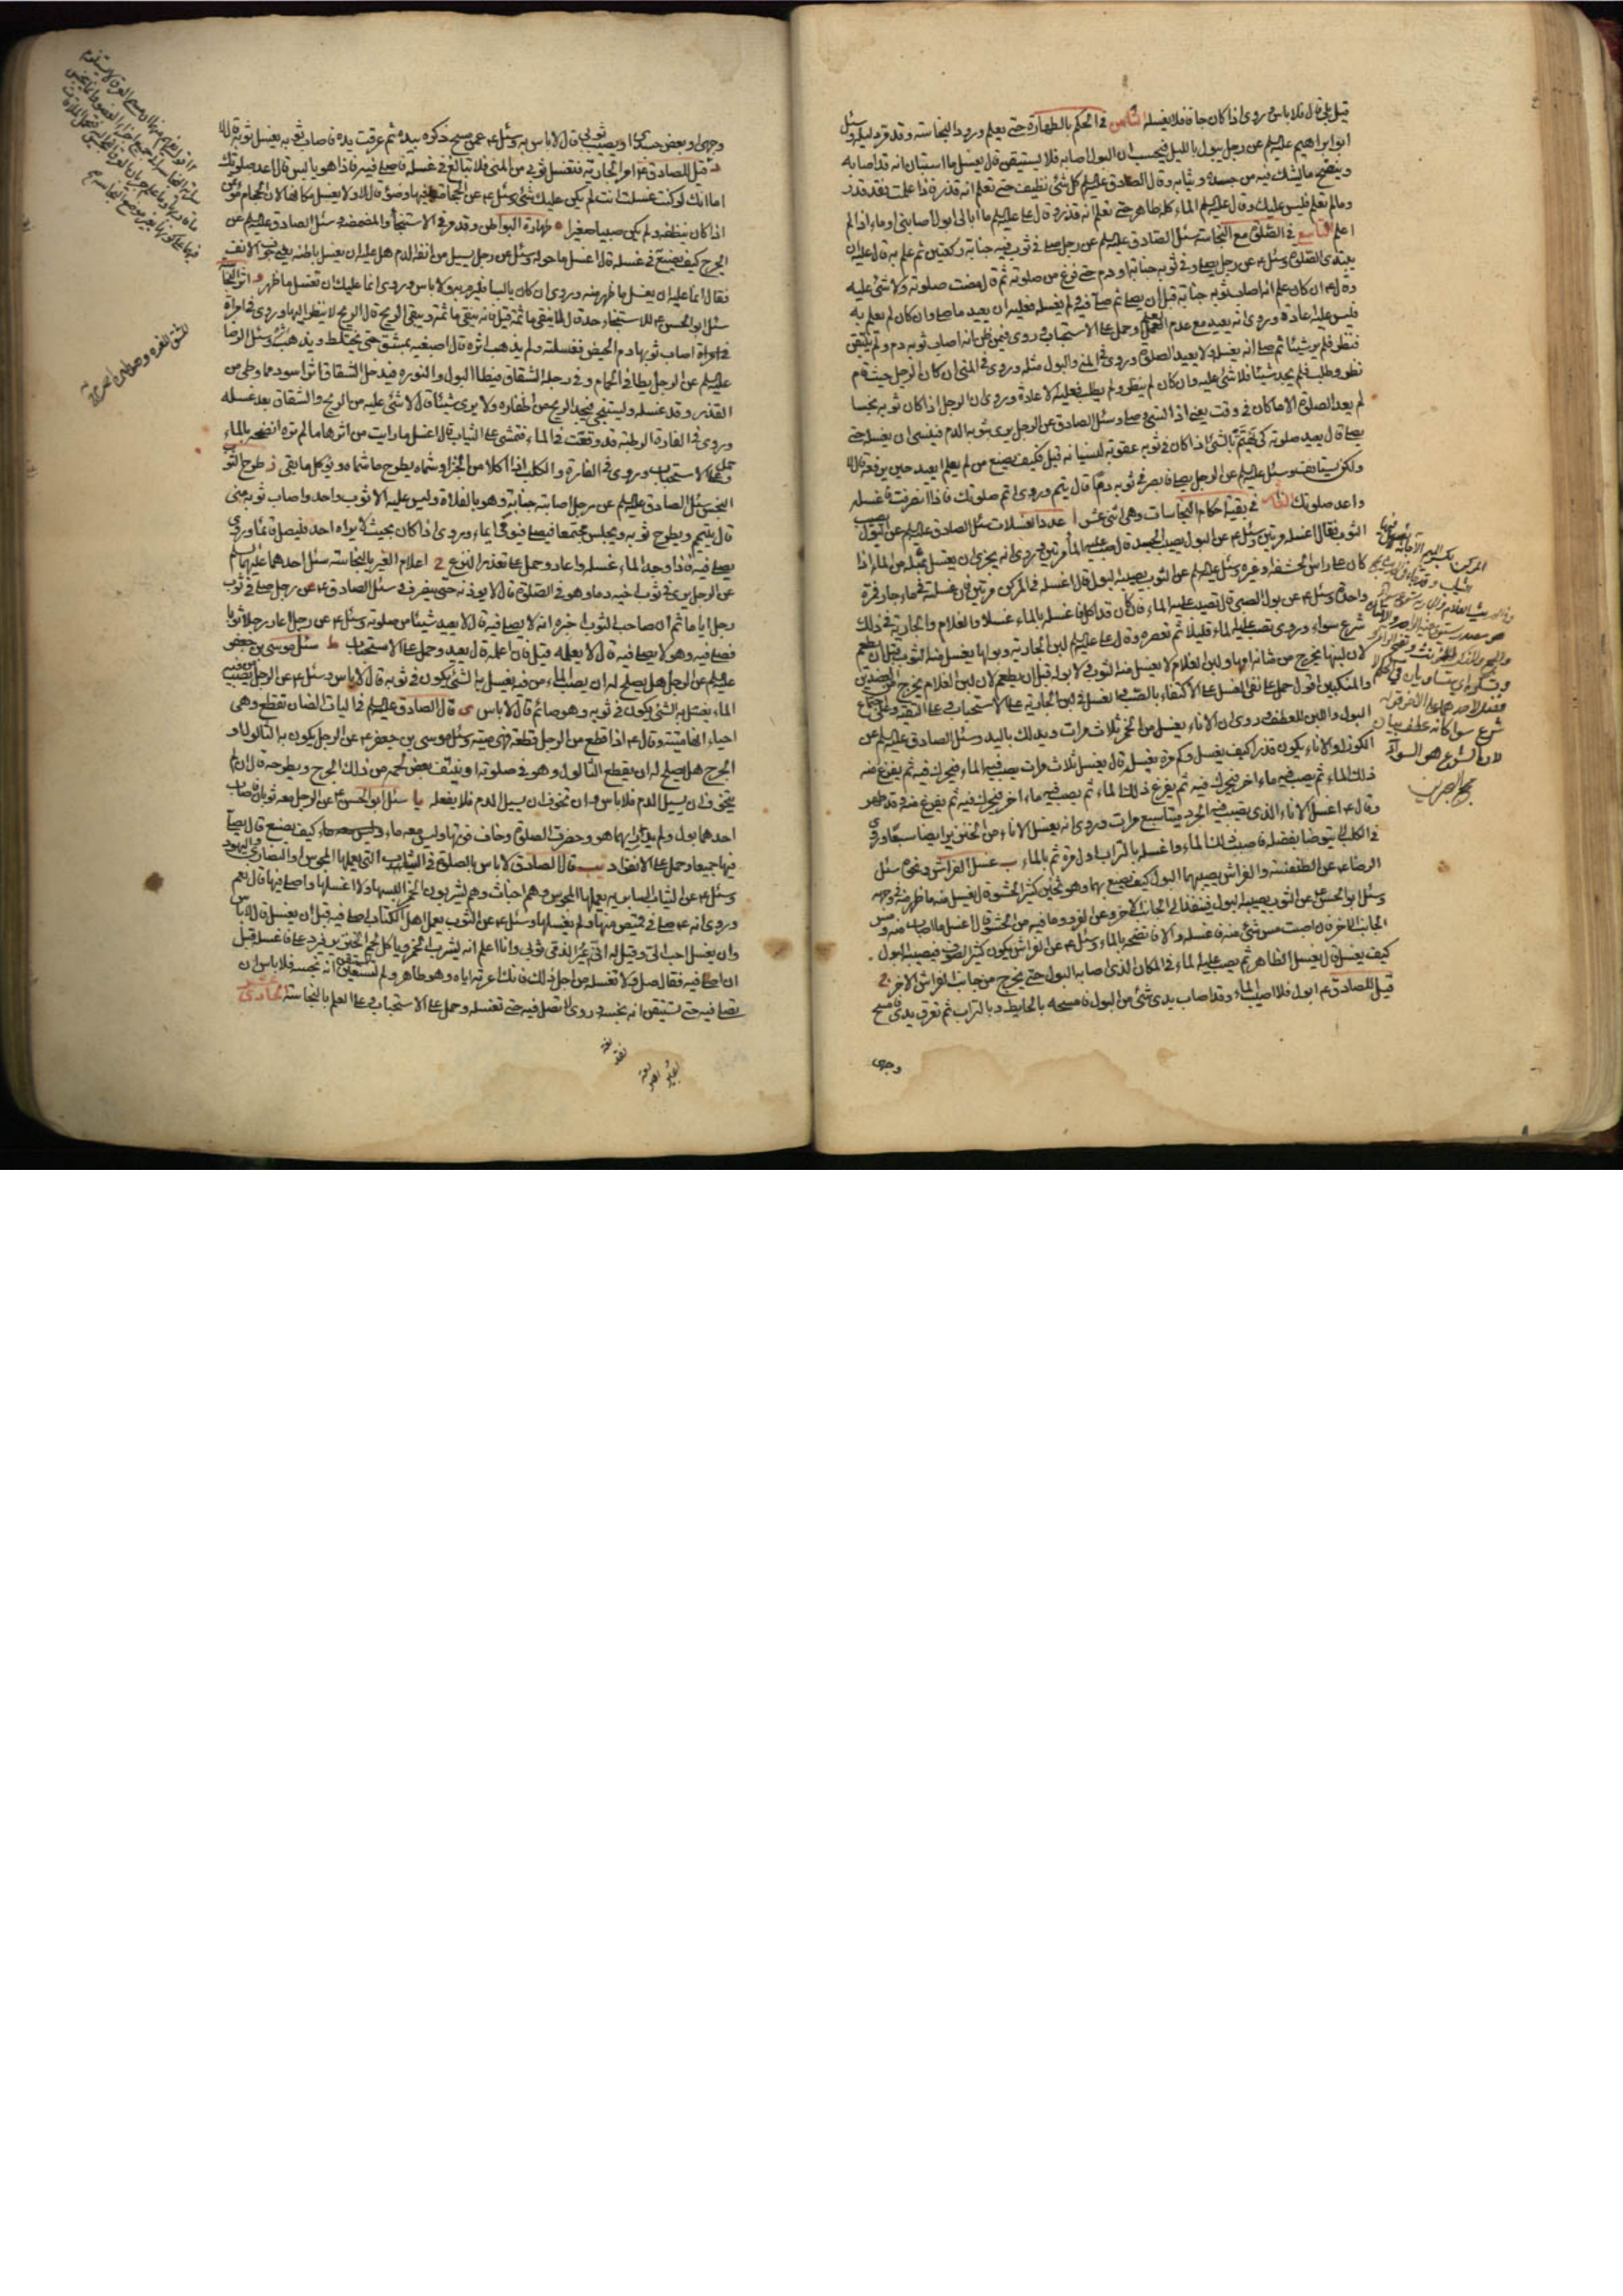 قيل علي قال فلا باس وروى اذا كان جافا فلا يغسله الثامن في الحكم بالطهارة حتى يعلم ورود النجاسة وقد مر وسئل
ابو ابراهيم عليه السلم عن رجل يبول بالليل فيحسب ان البول اصابه فلا يستيقن قال يغسل ما استبان انه قد اصابه
وينضح ما يشك فيه من جسده وثيابه وقال الصادق عليه السلم كل شئ نظيف حتى تعلم انه قذر فاذا علمت فقد قذر
وما لم تعلم فليس عليك وقال عليه السلم الماء كله طاهر حتى تعلم انه قذر وقال علي عليه السلم ما ابالي ابول اصابني او ماء اذا لم
اعلم التاسع في الصلوة مع النجاسة سئل الصادق عليه السلم عن رجل صلى في ثوب فيه جنابة ركعتين ثم علم به قال عليه ان
يبتدئ الصلوة وسئل عن رجل صلى وفي ثوبه جنابة او دم حتى فرغ من صلوته ثم علم قال مضت صلوته ولا شئ عليه
وقال ان كان علم انه اصاب ثوبه جنابة قبل ان يصلي ثم صلى فيه ولم يغسله فعليه ان يعيد ما صلى وان كان لم يعلم به
فليس عليه اعادة وروى انه يعيد مع عدم العلم وحمل على الاستحباب وروى فيمن ظن انه اصاب ثوبه دم ولم يتيقن
فنظر فلم ير شيئا ثم صلى انه يغسله ولا يعيد الصلوة وروى في المني والبول مثله وروى في المني ان كان الرجل حيث قام
نظر وطلب فلم يجد شيئا فلا شئ عليه وان كان لم ينظر ولم يطلب فعليه الاعادة وروى ان الرجل اذا كان ثوبه نجسا
لم يعد الصلوة الا ما كان في وقت يعني اذا نسي وصلى وسئل الصادق عن الرجل يرى بثوبه الدم فينسى ان يغسله حتى
يصلي قال يعيد صلوته كي يهتم بالشئ اذا كان في ثوبه عقوبة لنسيانه قيل فكيف يصنع من لم يعلم ايعيد حين يرفعه قال لا
ولكن يستانف وسئل عليه السلم عن الرجل يصلي فابصر في ثوبه دما قال يتم وروى اتم صلوتك فاذا انصرفت فاغسله
واعد صلوتك العاشر في بقية احكام النجاسات وهي اثنى عشر ا عدد الغسلات سئل الصادق عليه السلم عن البول يصيب
الثوب فقال اغسله مرتين وسئل عن البول يصيب الجسد قال صب عليه الماء مرتين وروى انه يجزي ان يغسل بمثله من الماء اذا
كان على راس الحشفة وغيره وسئل عليه السلم عن الثوب يصيبه البول قال اغسله في المركن مرتين فان غسلته في ماء جار فمرة
واحدة وسئل عن بول الصبي قال تصب عليه الماء فان كان قد اكل فاغسله بالماء غسلا والغلام والجارية في ذلك
شرع سواء وروى تصب عليه الماء قليلا ثم تعصره وقال علي عليه السلم لبن الجارية وبولها يغسل منه الثوب قبل ان تطعم
لان لبنها يخرج من مثانة امها ولبن الغلام لا يغسل منه الثوب ولا بوله قبل ان يطعم لان لبن الغلام يخرج من العضدين
والمنكبين اقول حمل على نفي الغسل على الاكتفاء بالصب والغسل في لبن الجارية على الاستحباب وعلى التقية وعلى اجتماع
البول واللبن للعطف وروى ان الاناء يغسل من الخمر ثلاث مرات ويدلك باليد وسئل الصادق عليه السلم عن
الكوز او الاناء يكون قذرا كيف يغسل وكم مرة يغسل قال يغسل ثلاث مرات يصب فيه الماء فيحرك فيه ثم يفرغ منه
ذلك الماء ثم يصب فيه ماء اخر فيحرك فيه ثم يفرغ ذلك الماء ثم يصب فيه ماء اخر فيحرك فيه ثم يفرغ منه وقد طهر
وقال اغسل الاناء الذي تصيب فيه الجرذ ميتا سبع مرات وروى انه يغسل الاناء من الخنزير ايضا سبعا وروى
في الكلب لا يتوضا بفضله فاصبب ذلك الماء واغسله بالتراب اول مرة ثم بالماء ب غسل الفراش ونحوه سئل
الرضا عن الطنفسة والفراش يصيبهما البول كيف يصنع بهما وهو ثخين كثير الحشو قال يغسل منه ما ظهر منه في وجهه
وسئل ابو الحسن عن الثوب يصيبه البول فينفذ الى الجانب الاخر وعن الفرو وما فيه من الحشو قال اغسل ما اصاب منه ومس
الجانب الاخر فان اصبت مس شئ منه فاغسله والا فانضحه بالماء وسئل عن الفراش يكون كثير الصوف فيصيبه البول
كيف يغسل قال يغسل الظاهر ثم يصب عليه الماء في المكان الذي اصابه البول حتى يخرج من جانب الفراش الاخر
قيل للصادق ابول فلا اصيب الماء وقد اصاب يدي شئ من البول فامسحه بالحايط وبالتراب ثم تعرق يدي فامسح
وجهي
شرع سوا كانه عطف بيان
لان الشرع هو السواء
مجمع البحرين
وجهي او بعض جسدي او يصيب ثوبي قال لا باس به وسئل عن مسح ذكره بيده ثم عرقت يده فاصاب ثوبه يغسل ثوبه قال لا
قيل للصادق امر الجارية فتغسل ثوبي من المني فلا تبالغ في غسله فاصلي فيه فاذا هو يابس قال اعد صلوتك
اما انك لو كنت غسلت انت لم يكن عليك شئ وسئل عن الحجامة افيها وضوء قال لا ولا يغسل مكانها لان الحجام مؤتمن
اذا كان ينظفه ولم يكن صبيا صغيرا ه طهارة البواطن وقد مر في الاستنجاء والمضمضة وسئل الصادق عليه السلم عن
الجرح كيف يصنع في غسله قال اغسل ما حوله وسئل عن رجل يسيل من انفه الدم هل عليه ان يغسل باطنه يعني جوف الانف
فقال انما عليه ان يغسل ما ظهر منه وروى ان كان يابسا فليرم به ولا باس وروى انما عليك ان تغسل ما ظهر و اثر النجاسة
سئل ابو الحسن للاستنجاء حد قال لا ينقي ما ثمة قيل فانه ينقي ما ثمة ويبقى الريح قال الريح لا ينظر اليها وروى في امراة
اصاب ثوبها دم الحيض فغسلته ولم يذهب اثره قال اصبغيه بمشق حتى يختلط ويذهب وسئل الرضا
عليه السلم عن الرجل يطا في الحمام وفي رجله الشقاق فيطا البول والنورة فيدخل الشقاق اثر اسود مما وطى من
القذر وقد غسله ويستنجي فيجد الريح من اظفاره ولا يرى شيئا قال لا شئ عليه من الريح والشقاق بعد غسله
وروى في الفارة الرطبة قد وقعت في الماء فتمشي على الثياب قال اغسل ما رايت من اثرها وما لم تره انضحه بالماء
وحمل على الاستحباب وروى في الفارة والكلب اذا اكلا من الخبز او شماه يطرح ما شماه ويؤكل ما بقي ز طرح الثوب
النجس سئل الصادق عليه السلم عن رجل اصابته جنابة وهو بالفلاة وليس عليه الا ثوب واحد واصاب ثوبه مني
قال يتيمم ويطرح ثوبه ويجلس مجتمعا فيصلي فيومي ايماء وروى اذا كان بحيث لا يراه احد فليصل قائما وروى
يصلي فيه فاذا وجد الماء غسله واعاد وحمل على تعذر النزع ح اعلام الغير بالنجاسة سئل احدهما عليهما السلم
عن الرجل يرى في ثوب اخيه دما وهو في الصلوة قال لا يوذنه حتى ينصرف وسئل الصادق عن رجل صلى في ثوب
رجل اياما ثم ان صاحب الثوب اخبره انه لا يصلي فيه قال لا يعيد شيئا من صلوته وسئل عن رجل اعار رجلا ثوبا
فصلى فيه وهو لا يصلي فيه قال لا يعلمه قيل فان اعلمه قال يعيد وحمل على الاستحباب ط سئل موسى بن جعفر
عليه السلم عن الرجل هل يصلح له ان يصب الماء من فيه يغسل به الشئ يكون في ثوبه قال لا باس وسئل عن الرجل يصب من فيه
الماء يغسل به الشئ يكون في ثوبه وهو صائم قال لا باس ي قال الصادق عليه السلم في اليات الضان تقطع وهي
احياء انها ميتة وقال اذا قطع من الرجل قطعة فهي ميتة وسئل موسى بن جعفر عن الرجل يكون به الثالول او
الجرح هل يصلح له ان يقطع الثالول وهو في صلوته او ينتف بعض لحمه من ذلك الجرح ويطرحه قال ان لم
يتخوف ان يسيل الدم فلا باس وان تخوف ان يسيل الدم فلا يفعله يا سئل ابو الحسن عن الرجل معه ثوبان فاصاب
احدهما بول ولم يدر ايهما هو وحضرت الصلوة وخاف فوتها وليس معه ماء كيف يصنع قال يصلي
فيهما جميعا وحمل على الانفراد يب قال الصادق لا باس بالصلوة في الثياب التي يعملها المجوس والنصارى واليهود
وسئل عن الثياب السابرية يعملها المجوس وهم اخباث وهم يشربون الخمر البسها ولا اغسلها واصلي فيها قال نعم
وروى انه صلى في قميص منها ولم يغسلها وسئل عن الثوب يعمله اهل الكتاب اصلي فيه قبل ان يغسل قال لا باس
وان يغسل احب الي وقيل له اني اعير الذمي ثوبي وانا اعلم انه يشرب الخمر وياكل لحم الخنزير فيرد علي فاغسله قبل
ان اصلي فيه فقال صل فيه ولا تغسله من اجل ذلك فانك اعرته اياه وهو طاهر ولم تستيقن انه نجسه فلا باس ان
تصلي فيه حتى تستيقن انه نجسه وروى لا تصل فيه حتى تغسله وحمل على الاستحباب وعلى العلم بالنجاسة الحادي عشر